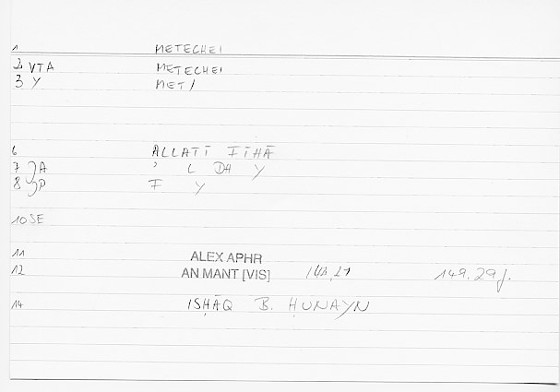 1 METECHEI
2 VTA METECHEI
3 Y MET/
6 ALLATĪ FĪHĀ
7 A ʾ L DH Y
8 P F Y
10 SE
11 ALEX APHR
12 AN MANT [VIS] 149.29f.
14 ISḤĀQ B. ḤUNAYN